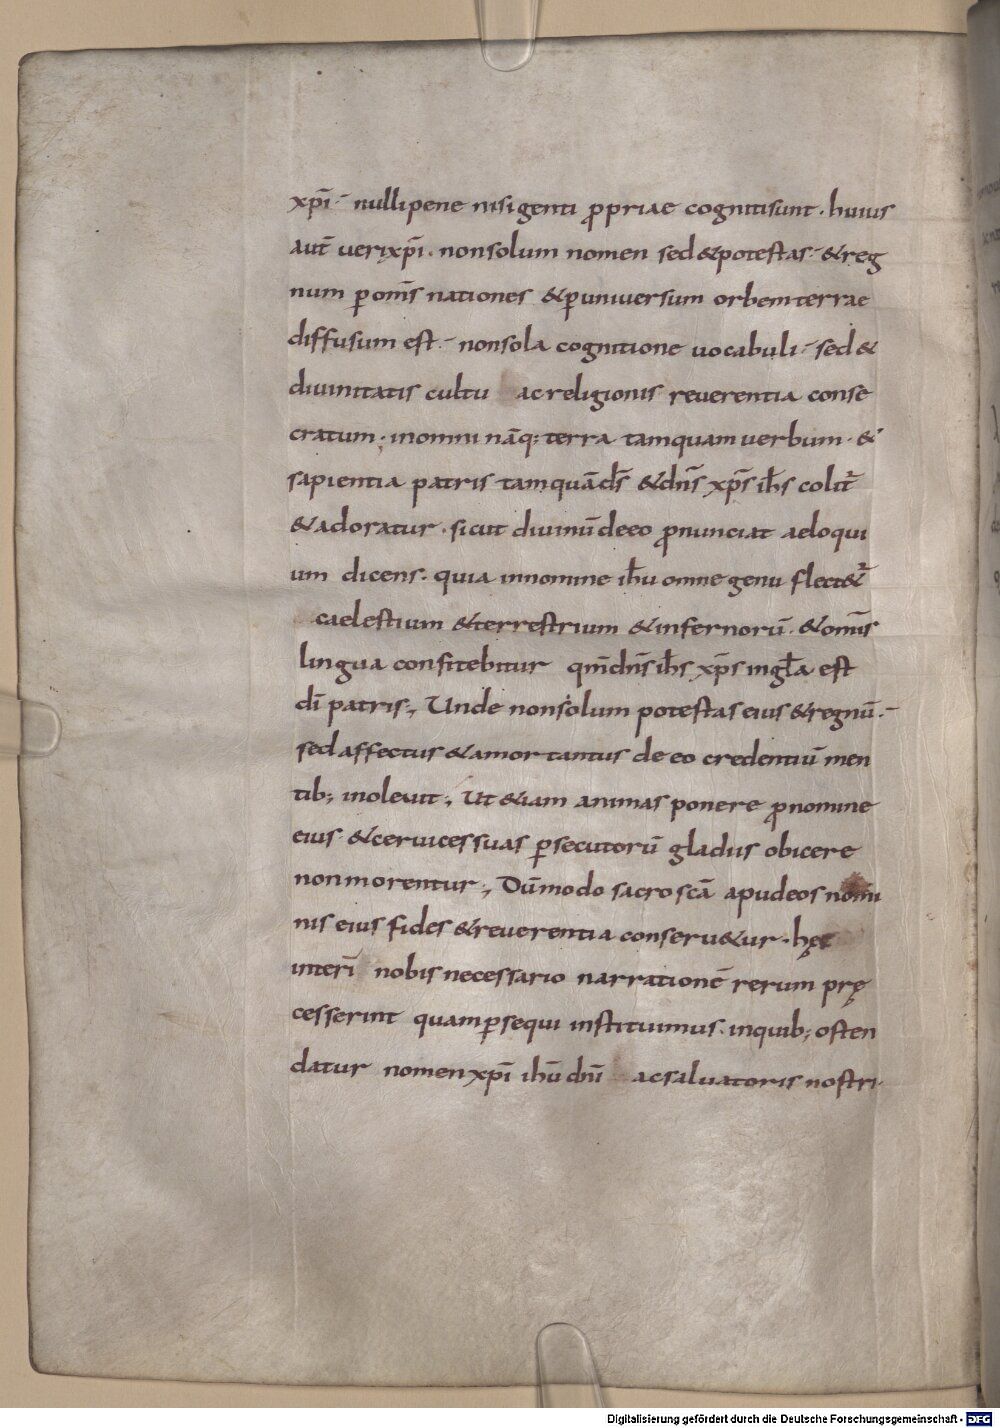 xp̄i · nulli pene nisi genti ꝓpriae cogniti sunt · huius
aut̄ veri xp̄i · non solum nomen sed & potestas · & reg
num ꝑ om̄s nationes & ꝑ universum orbem terrae
diffusum est · non sola cognitione vocabuli · sed &
divinitatis cultu ac religionis reverentia conse
cratum · in omni nāq; terra tamquam verbum · &
sapientia patris tamquā d̄s & dn̄s xp̄s ih̄s colit̄
& adoratur · sicut divinū de eo ꝓnunciat aeloqui
um dicens · quia in nomine ih̄u omne genu flect&̄
caelestium & terrestrium & infernorū · & om̄is
lingua confitebitur qm̄ dn̄s ih̄s xp̄s in gl̄a est
dī patris ; Unde non solum potestas eius & regnū ·
sed affectus & amor tantus de eo credentiū men
tib; inolevit ; Ut &iam animas ponere ꝓ nomine
eius & cervices suas ꝑsecutorū gladiis obicere
non morentur ; Dū modo sacro scā apud eos nomi
nis eius fides & reverentia conserv&ur · hęc
interī nobis necessario narrationē rerum prę
cesserint quam ꝑsequi instituimus · in quib; osten
datur nomen xp̄i ih̄u dn̄i ac salvatoris nostri ·
Digitalisierung gefördert durch die Deutsche Forschungsgemeinschaft - DFG